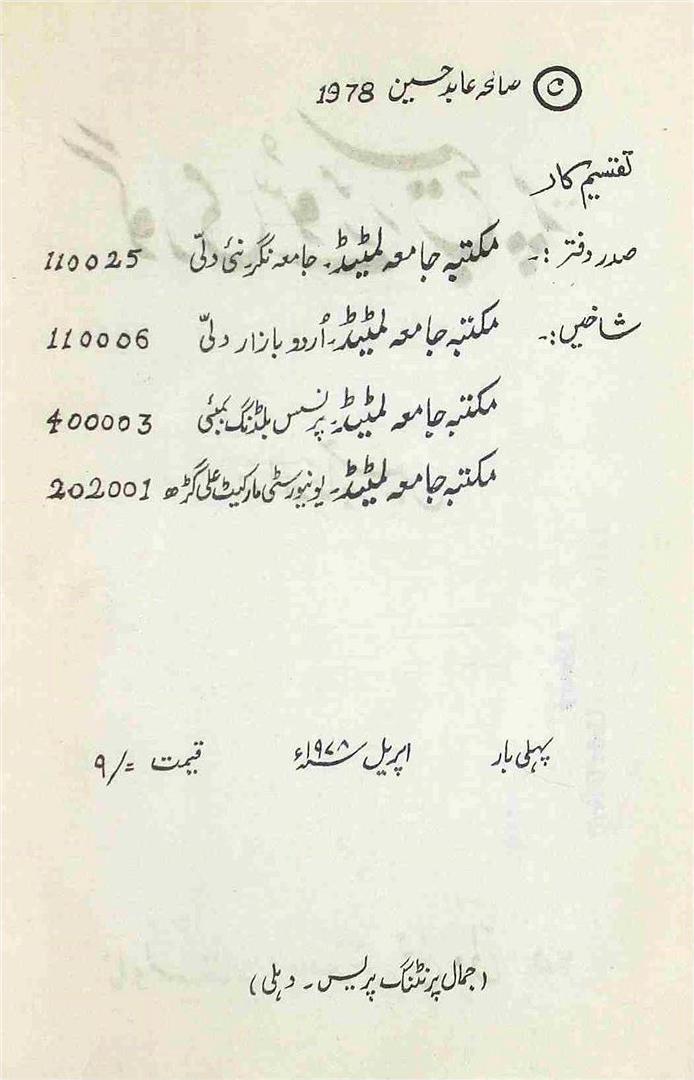 © صالحہ عابد حسین 1978
تقسیم کار
صدر دفتر :۔ مکتبہ جامعہ لمٹیڈ۔ جامعہ نگر نئی دلّی 110025
شاخیں :۔ مکتبہ جامعہ لمٹیڈ۔ اُردو بازار دلّی 110006
مکتبہ جامعہ لمٹیڈ۔ پرنسس بلڈنگ بمبئی 400003
مکتبہ جامعہ لمٹیڈ۔ یونیورسٹی مارکیٹ علی گڑھ 202001
پہلی بار اپریل ۱۹۷۸ء قیمت =/۹
(جمال پرنٹنگ پریس۔ دہلی)